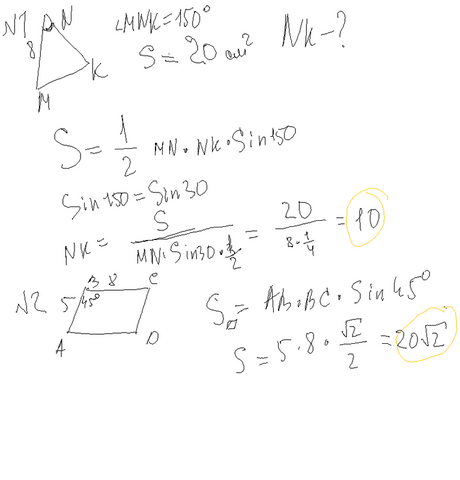 N1 N ∠MNK=150°
8 S=20 см² NK-?
K
M
S= 1/2 MN·NK·Sin150
Sin150=Sin30
NK= S/(MN·Sin30·1/2) = 20/(8·1/4) = 10
N2 B 8 C
5 45° S▱= AB·BC·Sin45°
A D S=5·8·√2/2 =20√2